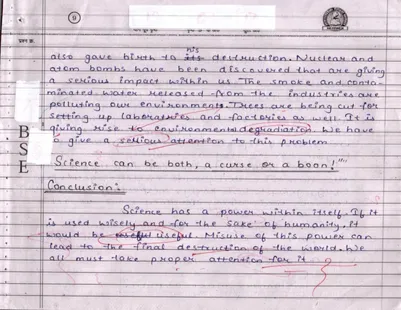 9
his
also gave birth to its destruction. Nuclear and
atom bombs have been discovered that are giving
a serious impact within us. The smoke and conta-
minated water released from the industries are
polluting our environments. Trees are being cut for
setting up laboratries and factories as well. It is
giving rise to environmental degradiation. We have
to give a serious attention to this problem
B
S
E
"Science can be both, a curse or a boon!"
Conclusion:
Science has a power within itself. If it
is used wisely and for the sake of humanity, it
would be useful. Misuse of this power can
lead to the final destruction of the world. We
all must take proper attention for it